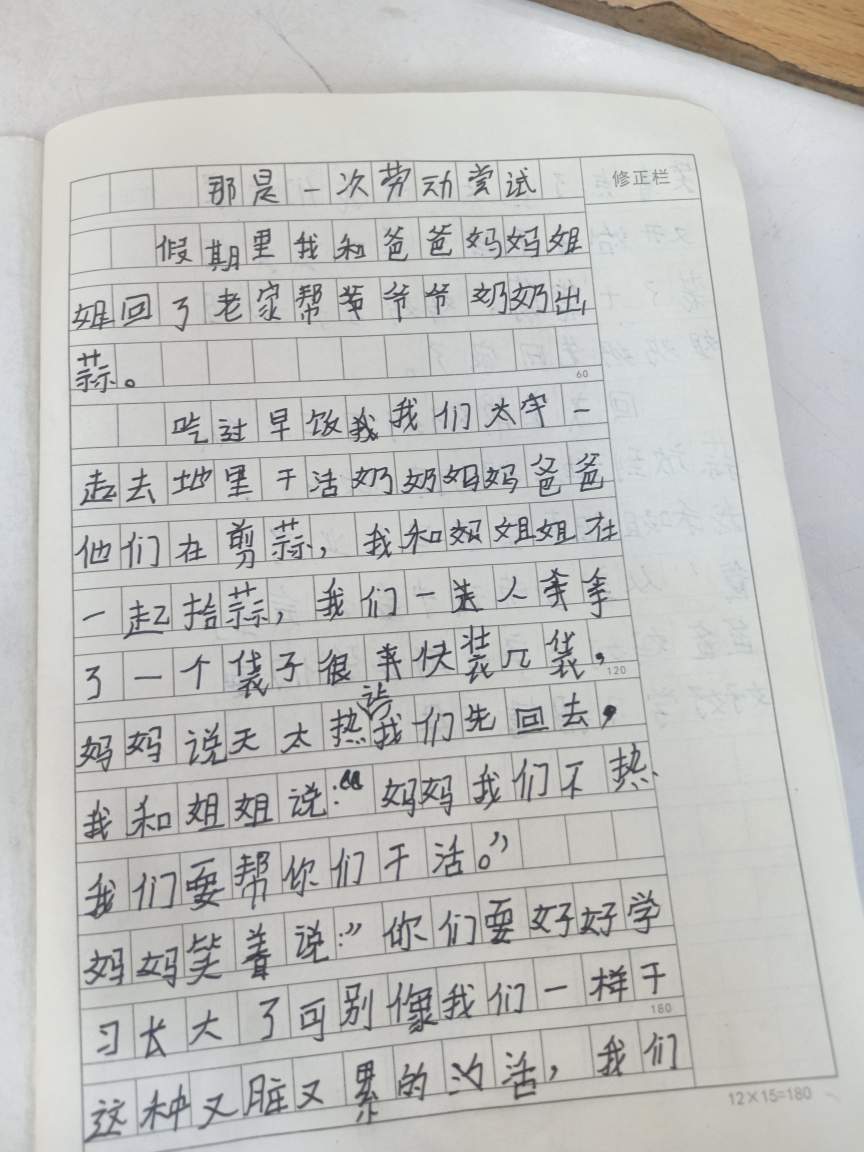 那是一次劳动尝试
修正栏
假期里我和爸爸妈妈姐
姐回了老家帮爷爷奶奶出
蒜。
60
吃过早饭我我们太牢一
起去地里干活奶奶妈妈爸爸
他们在剪蒜，我和姐姐在
一起拾蒜，我们一人拿
了一个袋子很快装几袋，
120
妈妈说天太热让我们先回去，
我和姐姐说：“妈妈我们不热
我们要帮你们干活。”
妈妈笑着说：”你们要好好学
习长大了可别像我们一样干
180
这种又脏又累的活，我们
12×15=180